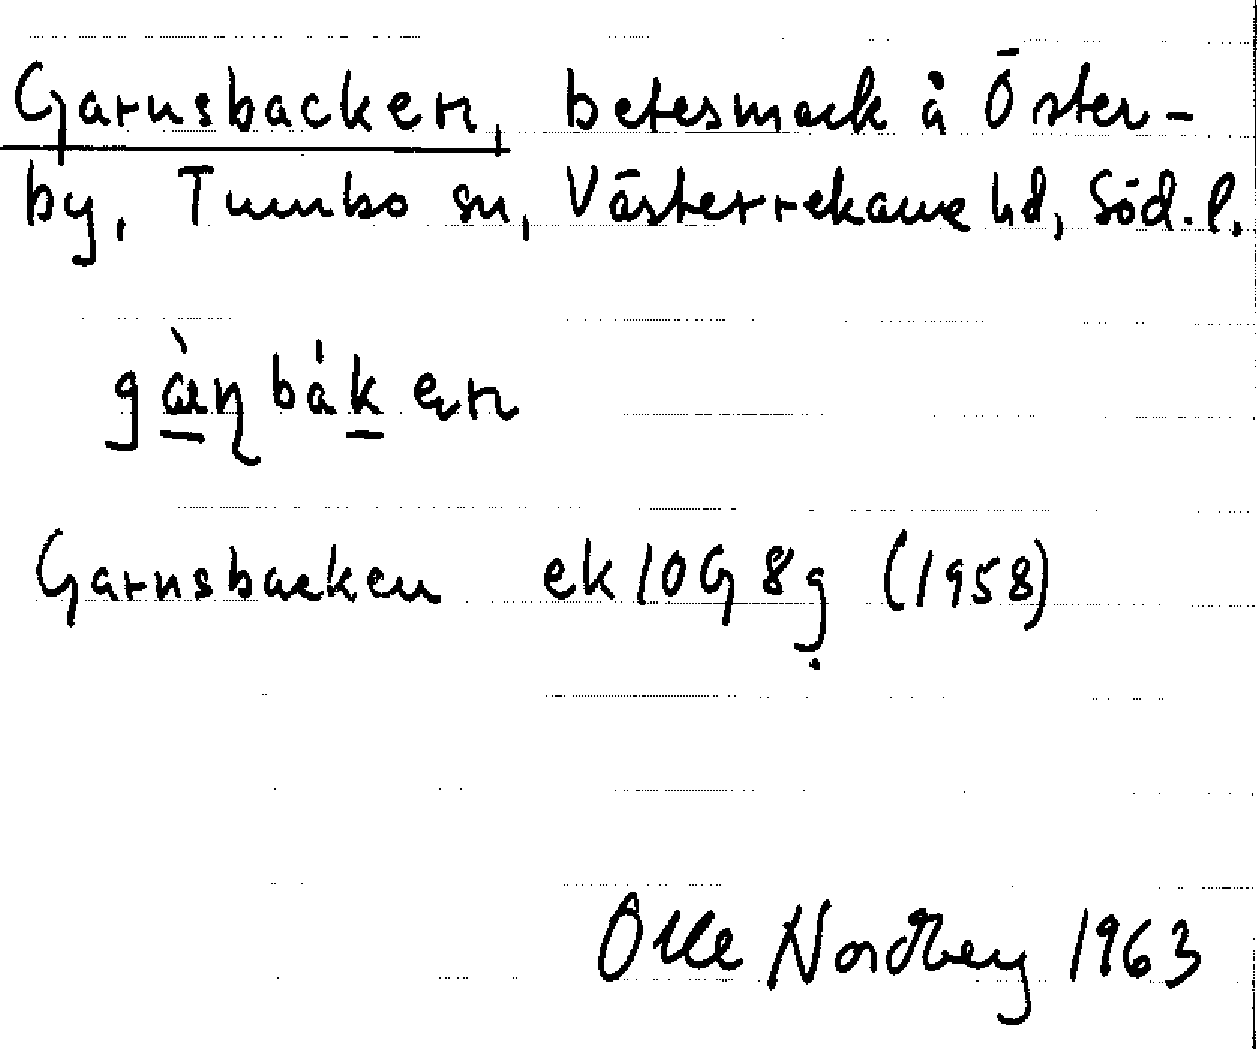 Garnsbacken, betesmark å Öster-
by, Tumbo sn, Västerrekarne hd, Söd.l.
gàṇbák en
Garnsbacken ek 10G 8g (1958)
Olle Nordberg 1963